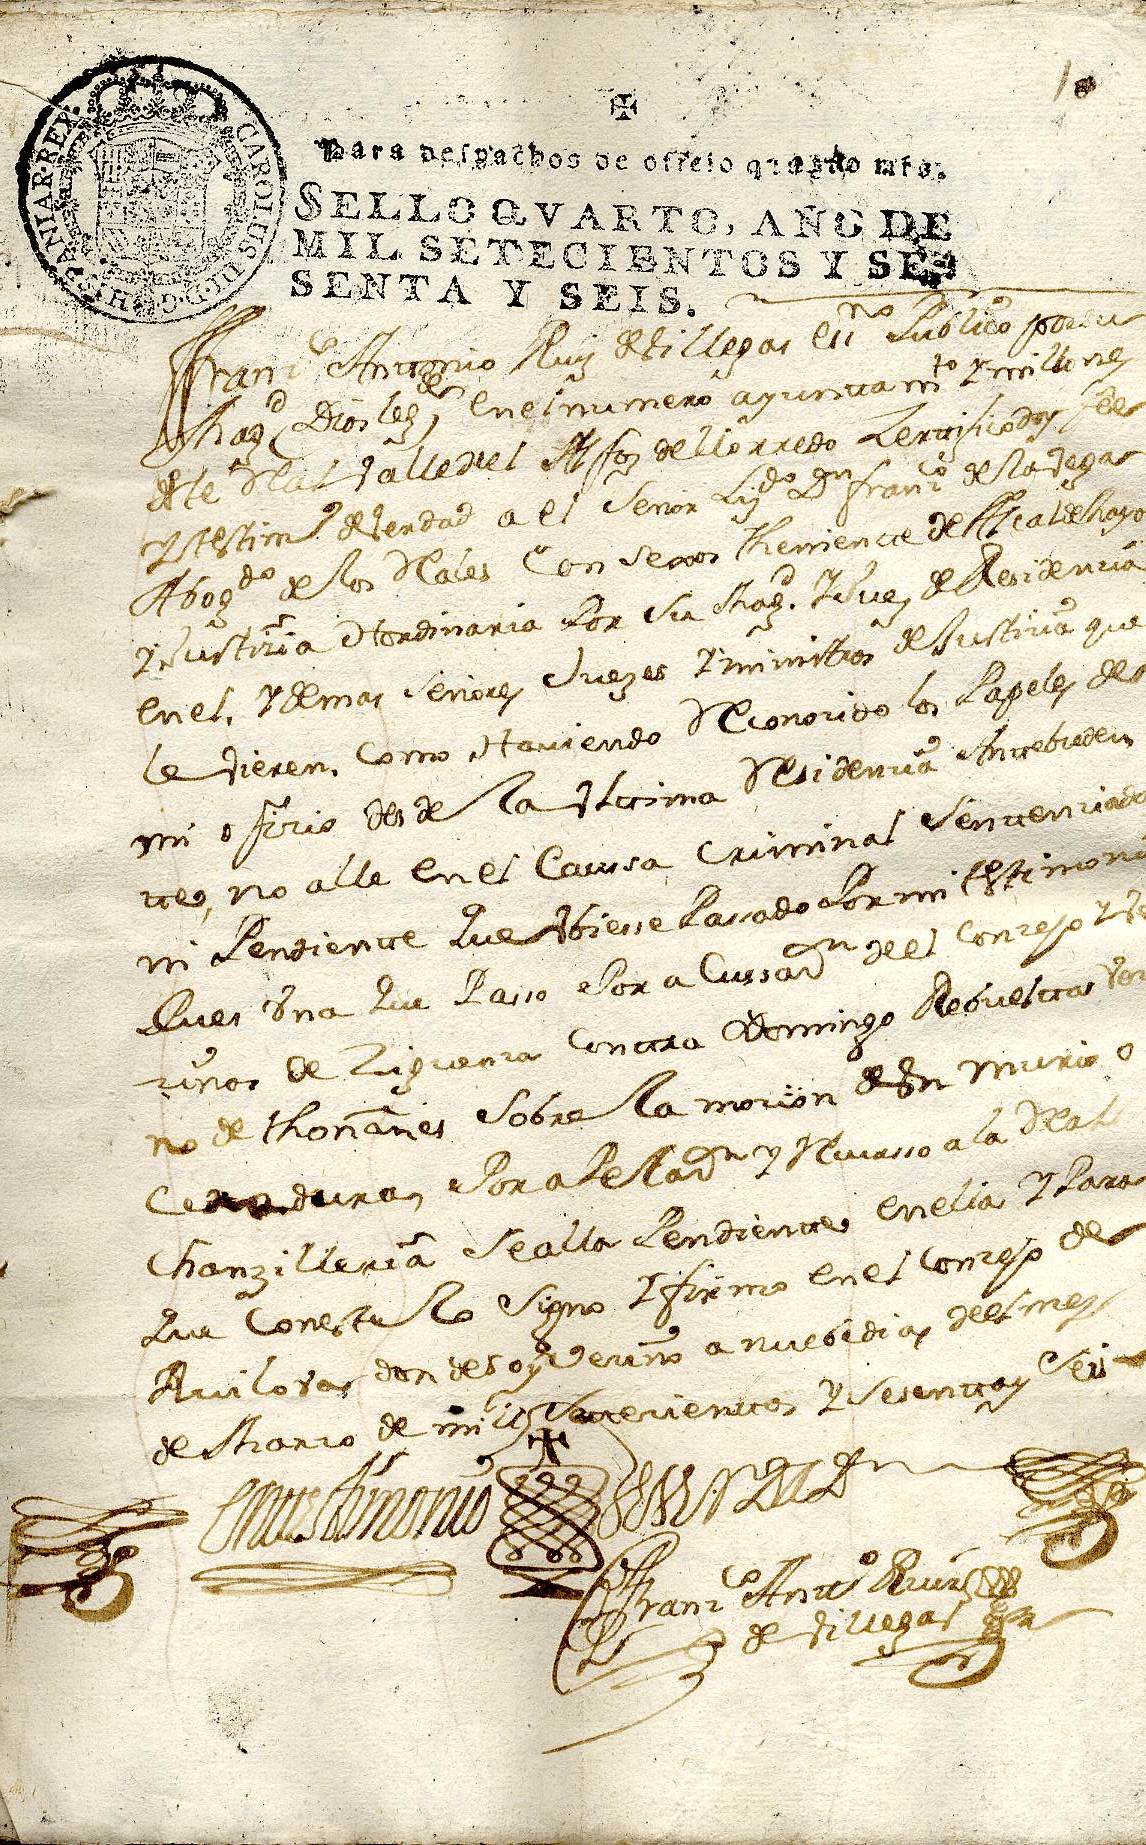 CAROLUS III D G HISPANIAR REX
1
Para despachos de officio quatro mrs.
SELLO QVARTO, AÑO DE
MIL SETECIENTOS Y SE-
SENTA Y SEIS.
Franco Antonio Ruiz de Villegas essno Publico por su
Magd Dios le ge en el numero ayuntamto y millones
deste Rl Valle de Alfoz de Llorredo Zertifico doy fee
y testimo de verdad a el Señor Lizdo Dn Franco de la Vega
Abogdo de los Rales Consexos theniente de Alcalde Mayor
y Justizia Hordinaria Por su Magd. y Juez de Residenzia
en el, y demas señores Juezes y ministros de Justizia que
le vieren, como Haviendo Reconozido los Papeles de
mi ofizio desde la Vltima Residenzia Antezeden
te, no alle en el Caussa Criminal Sentenziada
ni Pendiente que Vbiesse Passado Por mi testimonio
Pues Vna que Passo Por aCussazn de el Conzejo y Ve
zinos de Ziguenza Contra Domingo Rebueltas Vezi
no de thoñanes Sobre la mozion de Vn murio o
Cerradura, Por aPellazn y Recursso a la Real
Chanzilleria Se alla Pendiente en ella y Para
que Conste lo Signo y firmo en el Conzejo de
Ruiloba donde soy Vezino a nuebe dias de el mes
de Marzo de mill Setezientos y Sesenta y Seis
En testimonio de Verdad
Franco Anto Ruiz
de Villegas